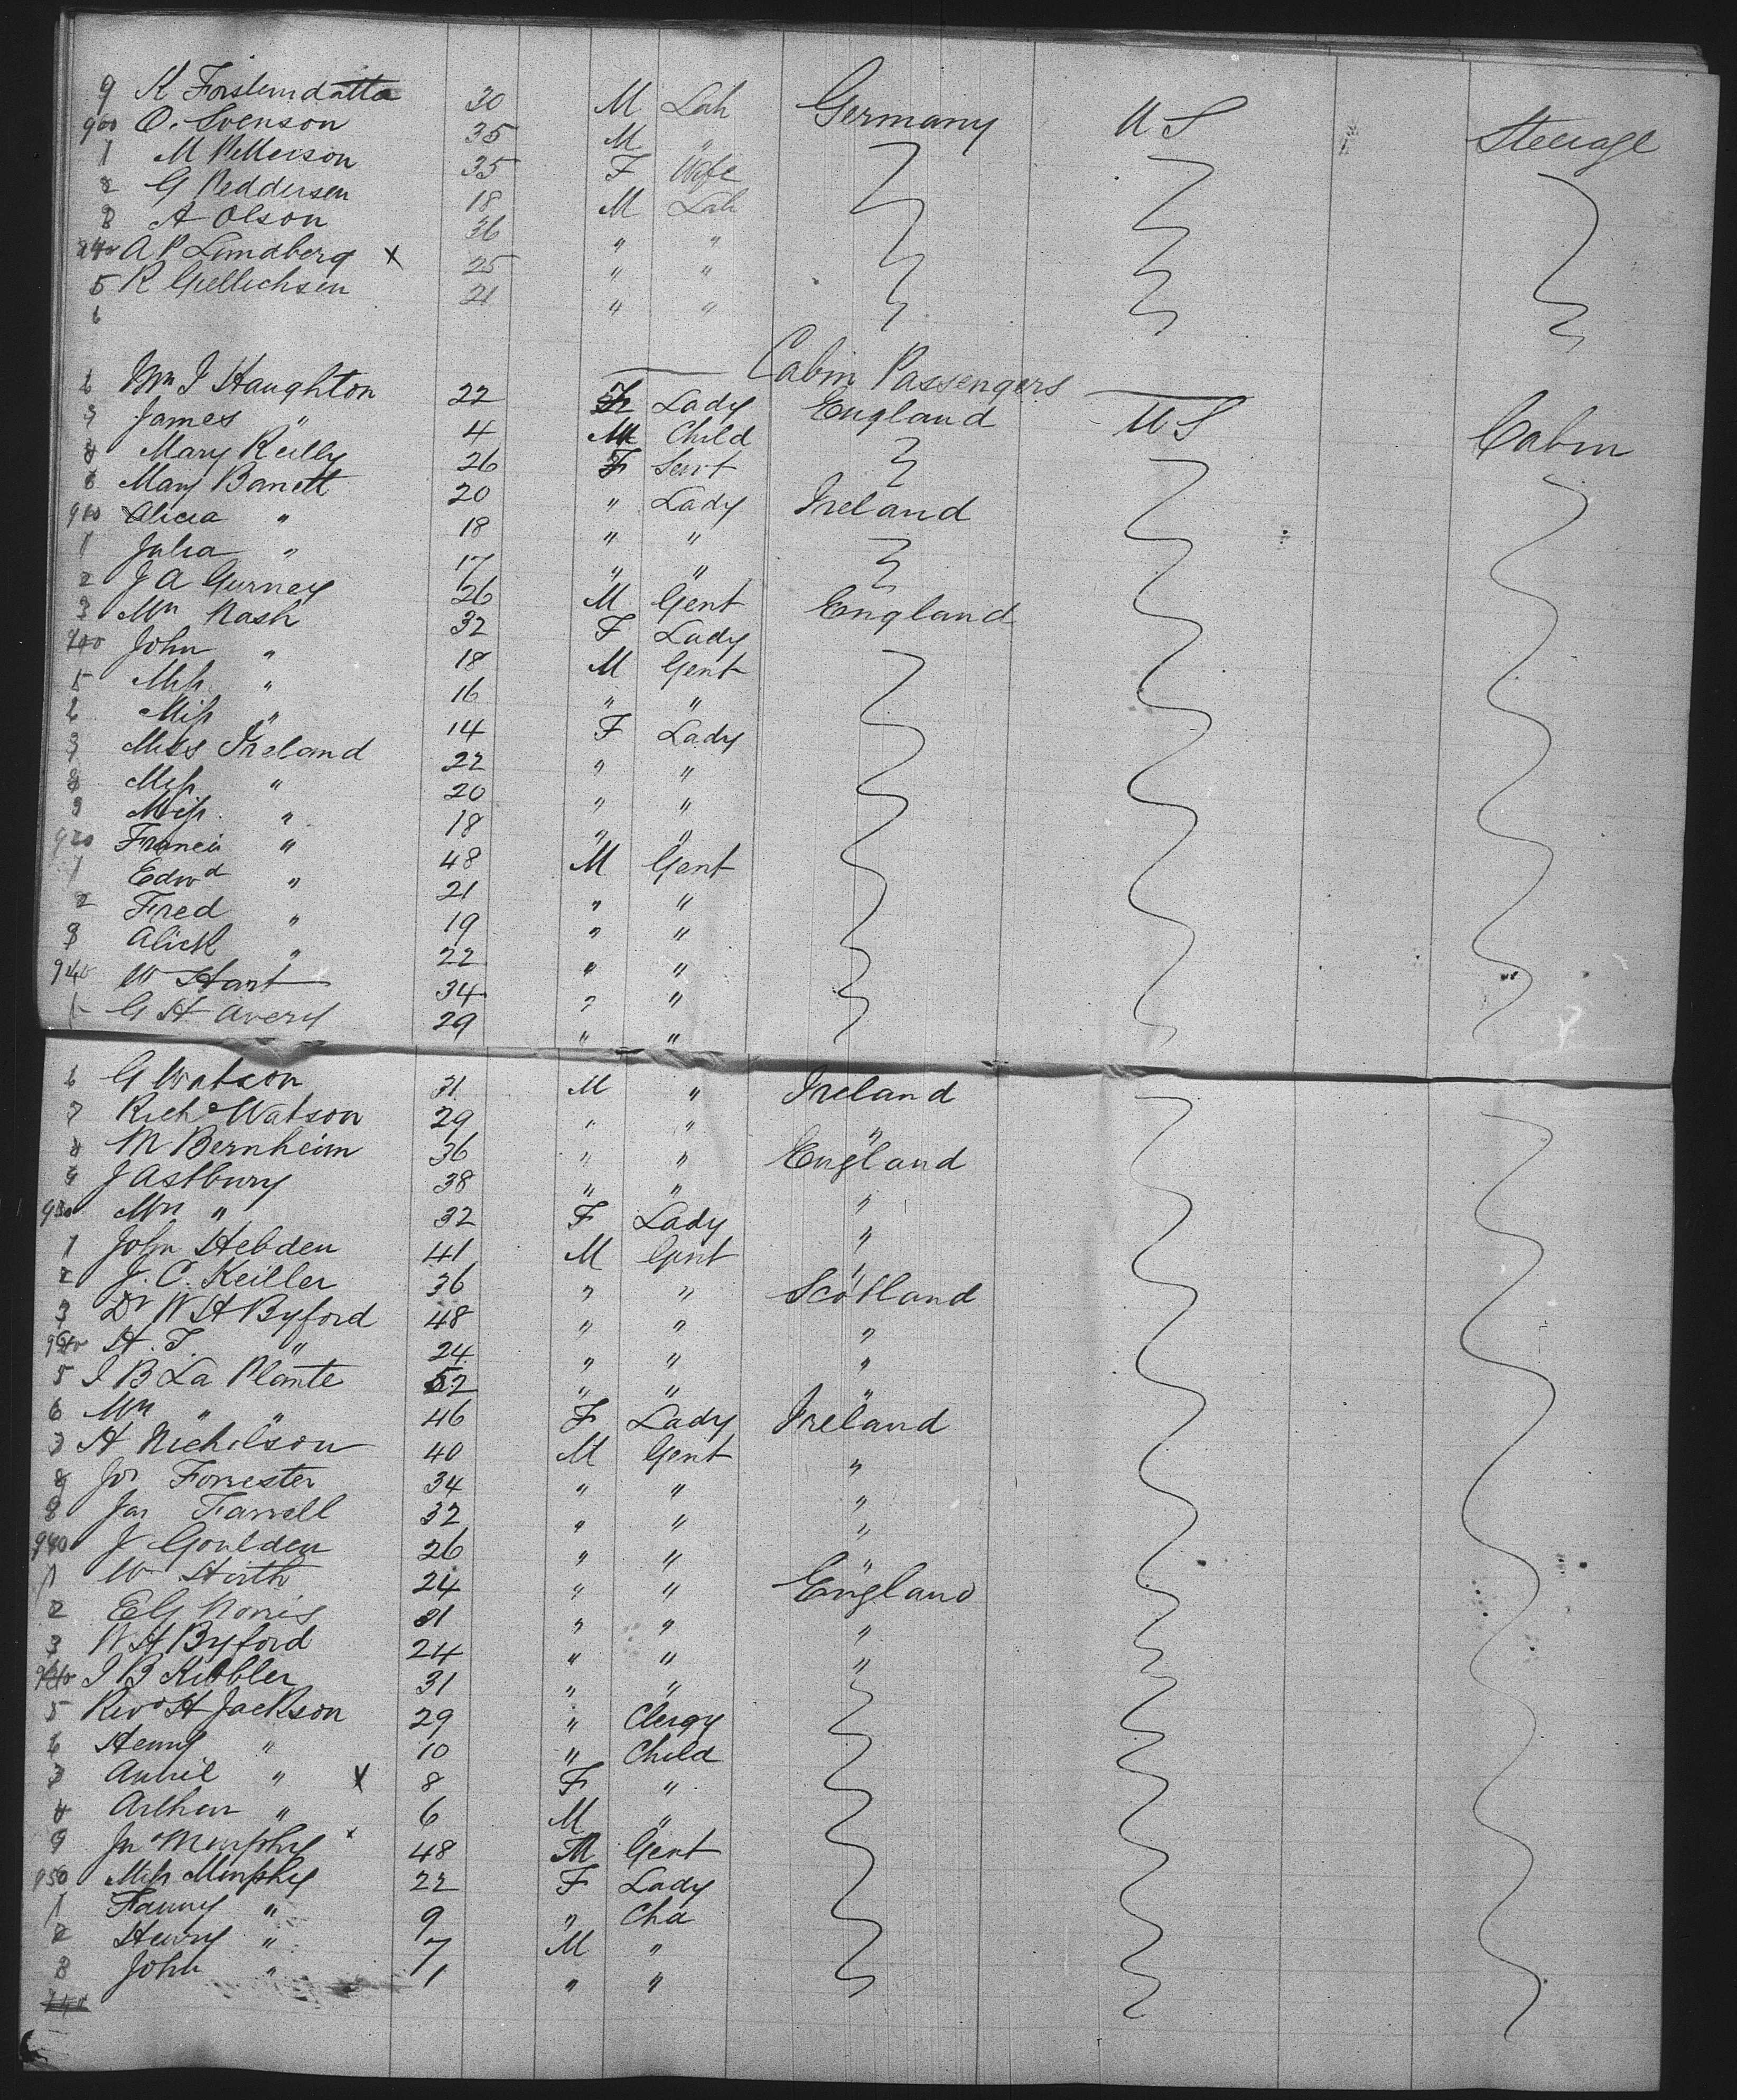 9 K Forstemdatta 30 M Lab Germany U S Steerage
900 O. Svenson 35 M "
1 M Petterson 35 F Wife
2 G Peddersen 18 M Lab
3 A Olson 36 " "
A P Lundberg X 25 " "
5 R Gullichsen 21 " "
6
Cabin Passengers
6 Mrs J Haughton 22 F Lady England U S Cabin
7 James " 4 M Child
8 Mary Reilly 26 F Servt
Mary Barrett 20 " Lady Ireland
910 Alicia " 18 " "
1 Julia " 17 " "
2 J A Gurney 26 M Gent England
3 Mrs Nash 32 F Lady
John " 18 M Gent
5 Miss " 16 " "
6 Miss " 14 F Lady
7 Miss Ireland 22 " "
8 Miss " 20 " "
9 Miss " 18 " "
920 Francis " 48 M Gent
1 Edwd " 21 " "
2 Fred " 19 " "
3 Alick " 22 " "
W Hart 34 " "
G H Avery 29 " "
6 G Watson 31 M " Ireland
7 Richd Watson 29 " " "
8 M Bernheim 36 " " England
9 J Astbury 38 " " "
930 Mrs " 32 F Lady "
1 John Hebden 41 M Gent "
2 J. C. Keiller 36 " " Scotland
3 Dr W H Byford 48 " " "
H. T. " 24 " " "
5 J B La Plante 52 " " "
6 Mrs " " 46 F Lady Ireland
7 H Nicholson 40 M Gent "
8 Jos Forrester 34 " " "
9 Jas Farrell 32 " " "
940 J Goulden 26 " " "
1 W Hirth 24 " " England
2 E G Norris 31 " " "
3 W H Byford 24 " " "
J B Kibbler 31 " "
5 Revd H Jackson 29 " Clergy
6 Henry " 10 " Child
7 " X 8 F "
8 Arthur " 6 M "
9 Jno Murphy x 48 M Gent
950 Miss Murphy 22 F Lady
1 Fanny " 9 " Chd
2 Henry " 7 M "
3 John " 1 " "